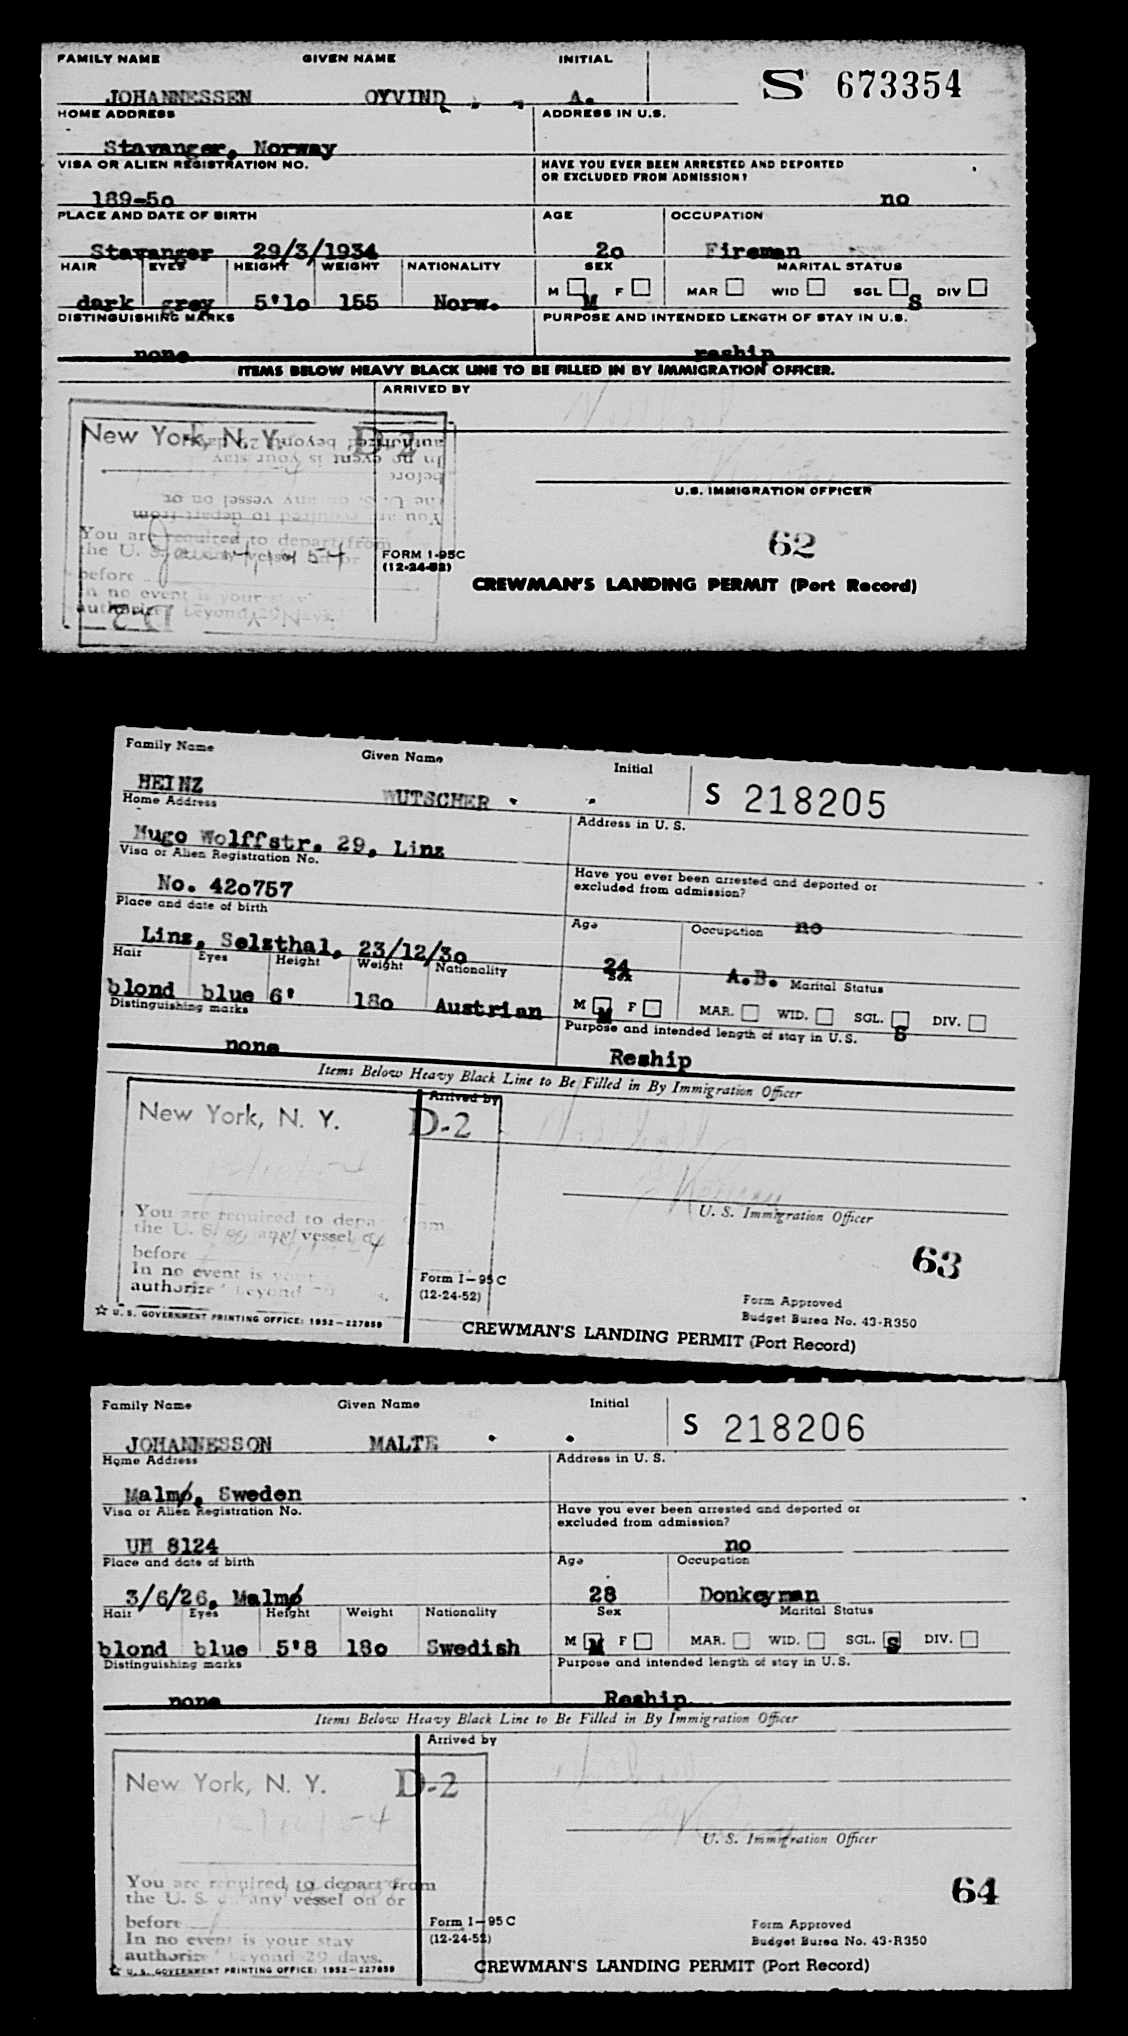 FAMILY NAME GIVEN NAME INITIAL
S 673354
JOHANNESSEN OYVIND , , A.
HOME ADDRESS ADDRESS IN U.S.
Stavanger, Norway
VISA OR ALIEN REGISTRATION NO. HAVE YOU EVER BEEN ARRESTED AND DEPORTED
OR EXCLUDED FROM ADMISSION?
189-5o no
PLACE AND DATE OF BIRTH AGE OCCUPATION
Stavanger 29/3/1934 2o Fireman
HAIR EYES HEIGHT WEIGHT NATIONALITY SEX MARITAL STATUS
M F MAR WID SGL DIV
dark grey 5'1o 155 Norw. M S
DISTINGUISHING MARKS PURPOSE AND INTENDED LENGTH OF STAY IN U.S.
none reship
ITEMS BELOW HEAVY BLACK LINE TO BE FILLED IN BY IMMIGRATION OFFICER.
ARRIVED BY
New York, N. Y. D-2
U.S. IMMIGRATION OFFICER
You are required to depart from
the U. S. vessel or
before
In no event is your stay
beyond 29
62
FORM I-95C
(12-24-52)
CREWMAN'S LANDING PERMIT (Port Record)
Family Name Given Name Initial
S 218205
HEINZ WUTSCHER . .
Home Address Address in U. S.
Mugo Wolffstr. 29, Linz
Visa or Alien Registration No. Have you ever been arrested and deported or
excluded from admission?
No. 42o757 no
Place and date of birth Age Occupation
Linz, Selzthal, 23/12/3o 24 A.B.
Hair Eyes Height Weight Nationality Sex Marital Status
M F MAR. WID. SGL. DIV.
blond blue 6' 18o Austrian M S
Distinguishing marks Purpose and intended length of stay in U.S.
none Reship
Items Below Heavy Black Line to Be Filled in By Immigration Officer
Arrived by
New York, N. Y. D-2
You are required to depa
the U. S. any vessel
U. S. Immigration Officer
before
In no event is your
beyond
63
Form I-95 C
(12-24-52)
Form Approved
Budget Burea No. 43-R350
☆ U. S. GOVERNMENT PRINTING OFFICE: 1952-227859
CREWMAN'S LANDING PERMIT (Port Record)
Family Name Given Name Initial
S 218206
JOHANNESSON MALTE . .
Home Address Address in U. S.
Malmø, Sweden
Visa or Alien Registration No. Have you ever been arrested and deported or
excluded from admission?
UM 8124 no
Place and date of birth Age Occupation
3/6/26, Malmø 28 Donkeyman
Hair Eyes Height Weight Nationality Sex Marital Status
M F MAR. WID. SGL. DIV.
blond blue 5'8 18o Swedish M S
Distinguishing marks Purpose and intended length of stay in U.S.
none Reship.
Items Below Heavy Black Line to Be Filled in By Immigration Officer
Arrived by
New York, N. Y. D-2
12/10/54
U. S. Immigration Officer
You are required to depart from
the U. S. any vessel on or
before
In no event is your stay
beyond 29 days.
64
Form I-95 C
(12-24-52)
Form Approved
Budget Burea No. 43-R350
☆ U. S. GOVERNMENT PRINTING OFFICE: 1952-227859
CREWMAN'S LANDING PERMIT (Port Record)